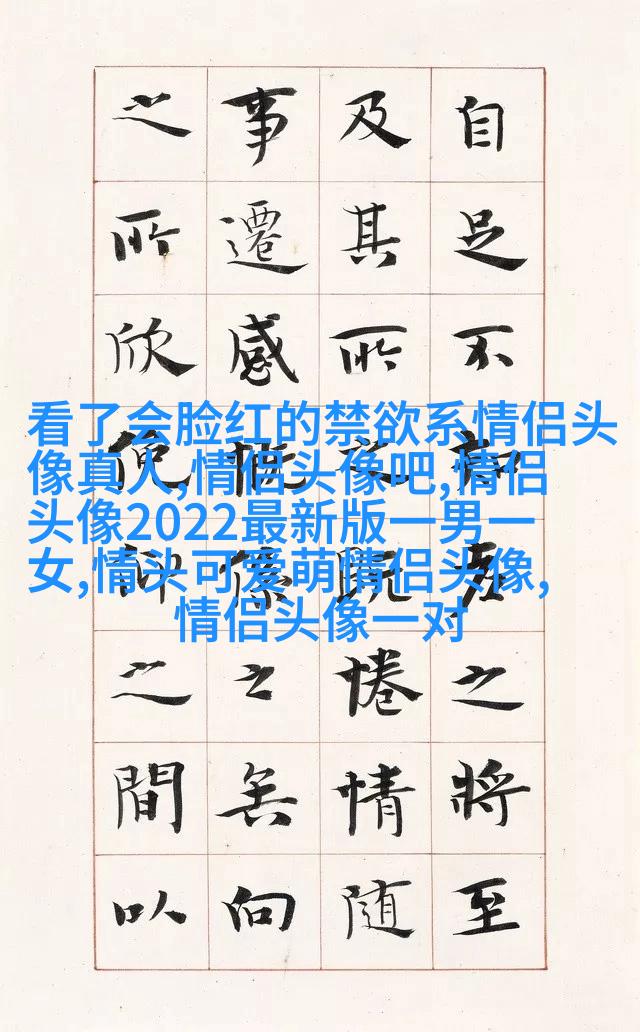 自足不知老之將至
及其所之既惓情隨
事遷感慨係之矣向
之所欣俛仰之間以
看了会脸红的禁欲系情侣头
像真人,情侣头像吧,情侣
头像2022最新版一男一
女,情头可爱萌情侣头像,
情侣头像一对